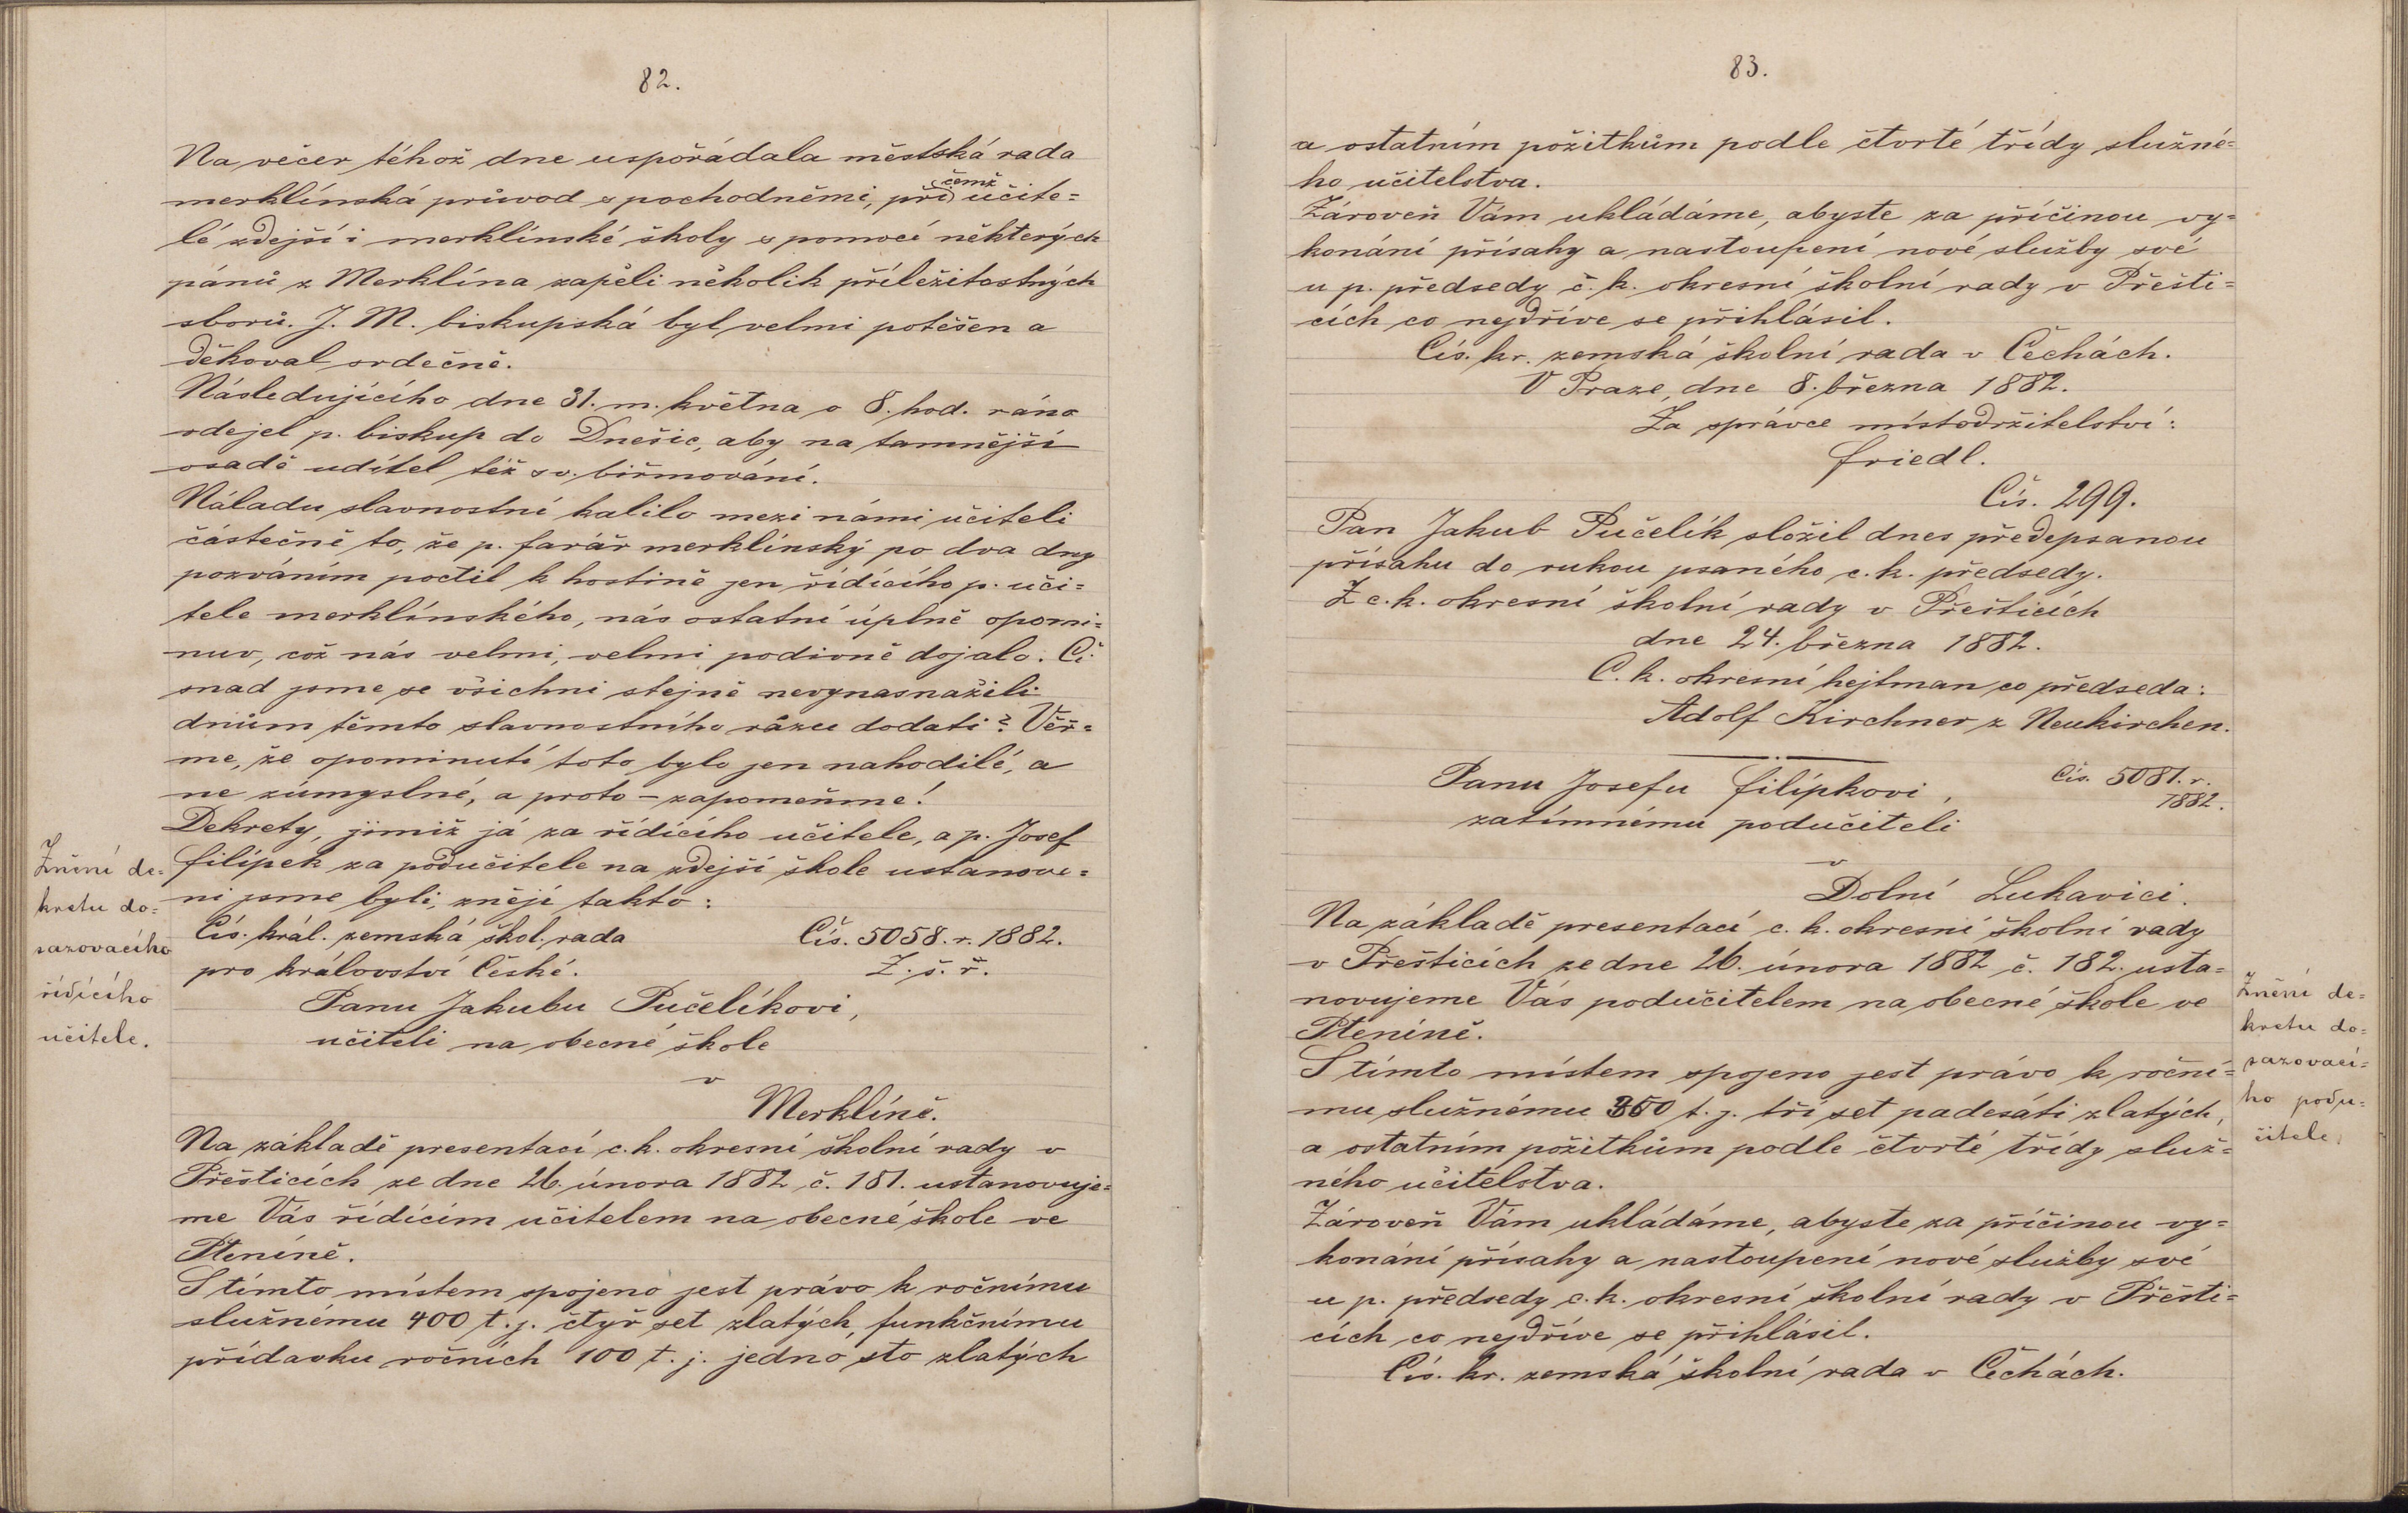 82.
Na večer téhož dne uspořádala městská rada
merklínská průvod s pochodněmi, při čemž učite=
lé zdejší i merklínské školy s pomocí některých
pánů z Merklína zapěli několik příležitostných
sborů. J. M. biskupská byl velmi potěšen a
děkoval srdečně.
Následujícího dne 31. m. května o 8. hod. ráno
odejel p. biskup do Dnešic, aby na tamnější
osadě udílel též sv. biřmování.
Náladu slavnostní kalilo mezi námi učiteli
částečně to, že p. farář merklínský po dva dny
pozváním poctil k hostině jen řídícího p. uči=
tele merklínského, nás ostatní úplně opomi=
nuv, což nás velmi, velmi podivně dojalo. Či
snad jsme se všichni stejně nevynasnažili
dnům těmto slavnostního rázu dodati? Věř=
me, že opominutí toto bylo jen nahodilé, a
ne zúmyslné, a proto – zapomeňme!
Dekrety, jimiž já za řídícího učitele, a p. Josef
Filípek za podučitele na zdejší škole ustanove=
ni jsme byli, znějí takto:
Znění de=
kretu do=
sazovacího
řídícího
učitele.
Cís. král. zemská škol. rada
Čís. 5058. r. 1882.
pro království České.
Z. š. ř.
Panu Jakubu Pučelíkovi,
učiteli na obecné škole
v
Merklíně.
Na základě presentací c. k. okresní školní rady v
Přešticích ze dne 26. února 1882 č. 181. ustanovuje=
me Vás řídícím učitelem na obecné škole ve
Pteníně.
S tímto místem spojeno jest právo k ročnímu
služnému 400 t. j. čtyř set zlatých, funkčnímu
přídavku ročních 100 t. j. jedno sto zlatých
83.
a ostatním požitkům podle čtvrté třídy služné=
ho učitelstva.
Zároveň Vám ukládáme, abyste za příčinou vy=
konání přísahy a nastoupení nové služby své
u p. předsedy č. k. okresní školní rady v Přešti=
cích co nejdříve se přihlásil.
Cís. kr. zemská školní rada v Čechách.
V Praze, dne 8. března 1882.
Za správce místodržitelství:
Friedl.
Čís. 299.
Pan Jakub Pučelík složil dnes předepsanou
přísahu do rukou psaného c. k. předsedy.
Z c. k. okresní školní rady v Přešticích
dne 24. března 1882.
C. k. okresní hejtman co předseda:
Adolf Kirchner z Neukirchen.
Panu Josefu Filípkovi,
Čís. 5081. r.
1882.
zatímnému podučiteli
v
Dolní Lukavici.
Na základě presentací c. k. okresní školní rady
v Přešticích ze dne 26. února 1882 č. 182. usta=
novujeme Vás podučitelem na obecné škole ve
Pteníně.
S tímto místem spojeno jest právo k roční=
mu služnému 350 t. j. tři set padesáti zlatých,
a ostatním požitkům podle čtvrté třídy služ=
ného učitelstva.
Zároveň Vám ukládáme, abyste za příčinou vy=
konání přísahy a nastoupení nové služby své
u p. předsedy c. k. okresní školní rady v Přešti=
cích co nejdříve se přihlásil.
Cís. kr. zemská školní rada v Čechách.
Znění de=
kretu do=
sazovací=
ho podu=
čitele.